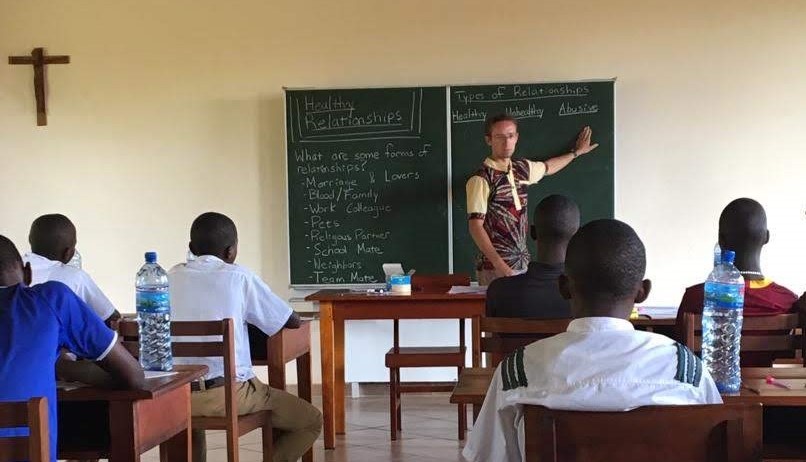 Healthy
Relationships
What are some forms of
relationships?
- Marriage & Lovers
- Blood/Family
- Work Colleague
- Pets
- Religious Partner
- School Mate
- Neighbors
- Team Mate
Types of Relationships
Healthy Unhealthy Abusive